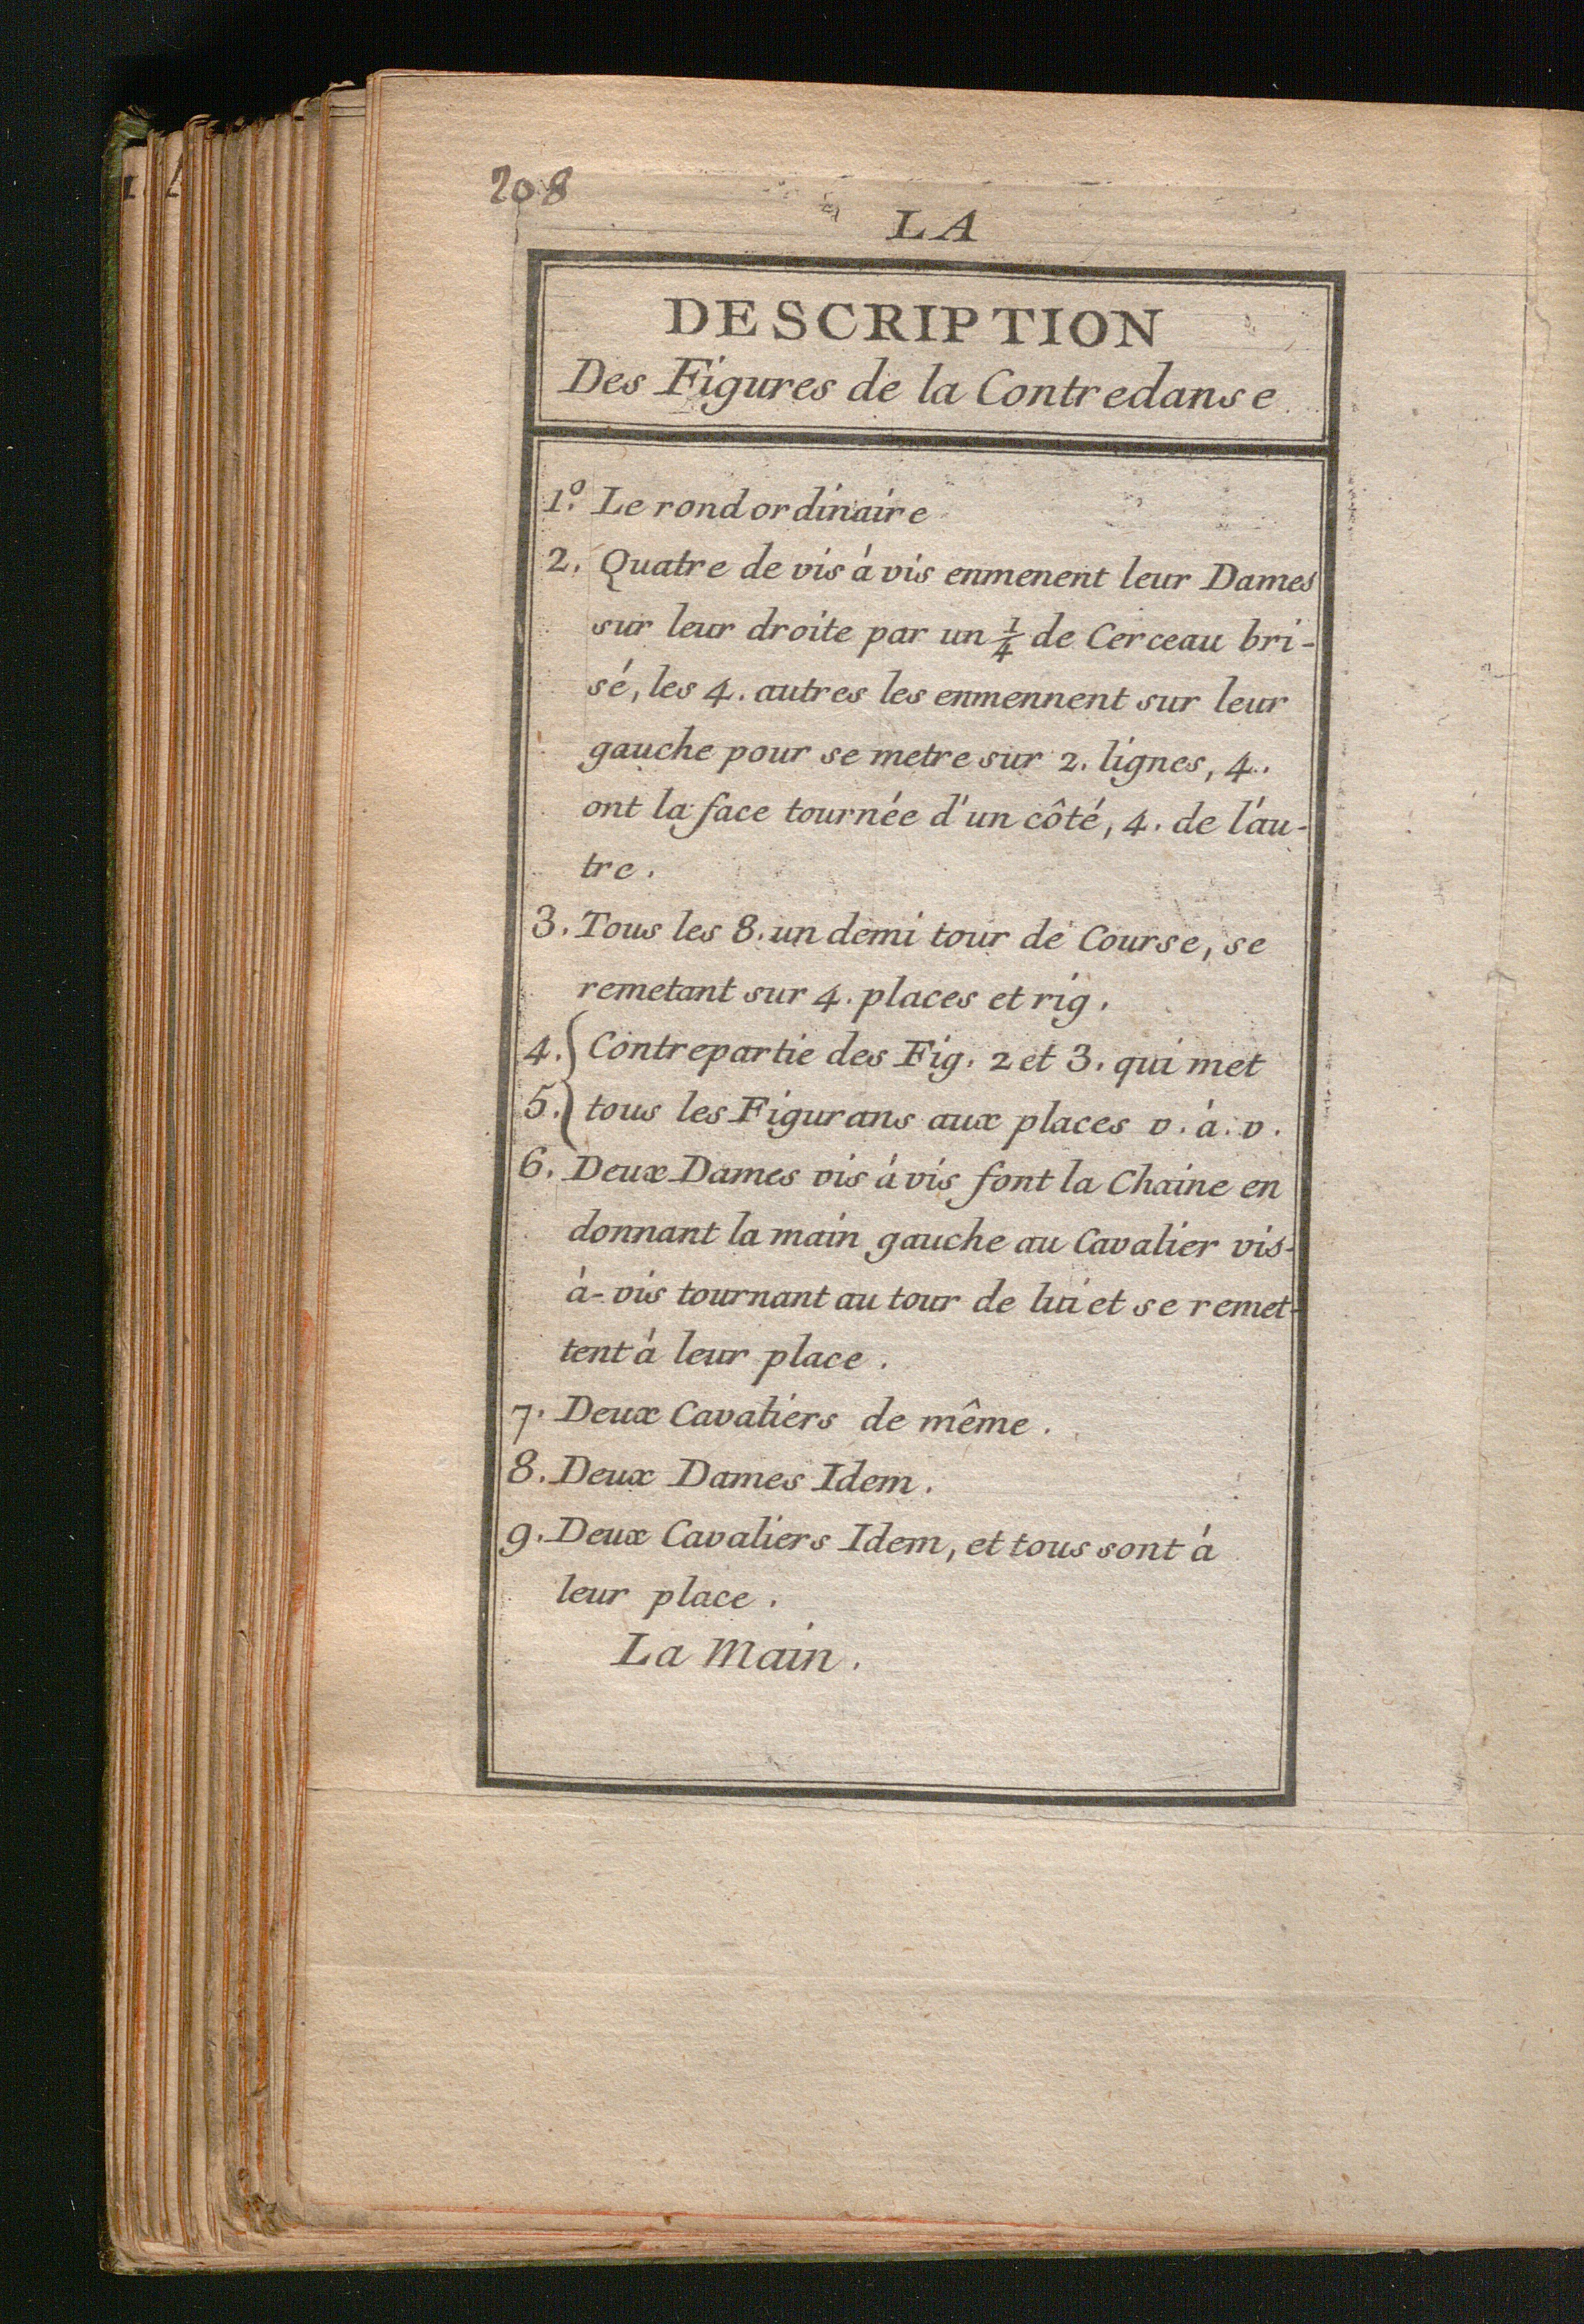 208
LA
DESCRIPTION
Des Figures de la Contredanse
1.º Le rond ordinaire
2. Quatre de vis à vis enmenent leur Dames
sur leur droite par un 1/4 de Cerceau bri-
sé, les 4. autres les enmennent sur leur
gauche pour se metre sur 2. lignes, 4.
ont la face tournée d'un côté, 4. de l'au-
tre.
3. Tous les 8. un demi tour de Course, se
remetant sur 4. places et rig.
4. { Contrepartie des Fig. 2 et 3. qui met
5. } tous les Figurans aux places v. à. v.
6. Deux Dames vis à vis font la Chaine en
donnant la main gauche au Cavalier vis-
à-vis tournant au tour de lui et se remet-
tent à leur place.
7. Deux Cavaliers de même.
8. Deux Dames Idem.
9. Deux Cavaliers Idem, et tous sont à
leur place.
La Main.